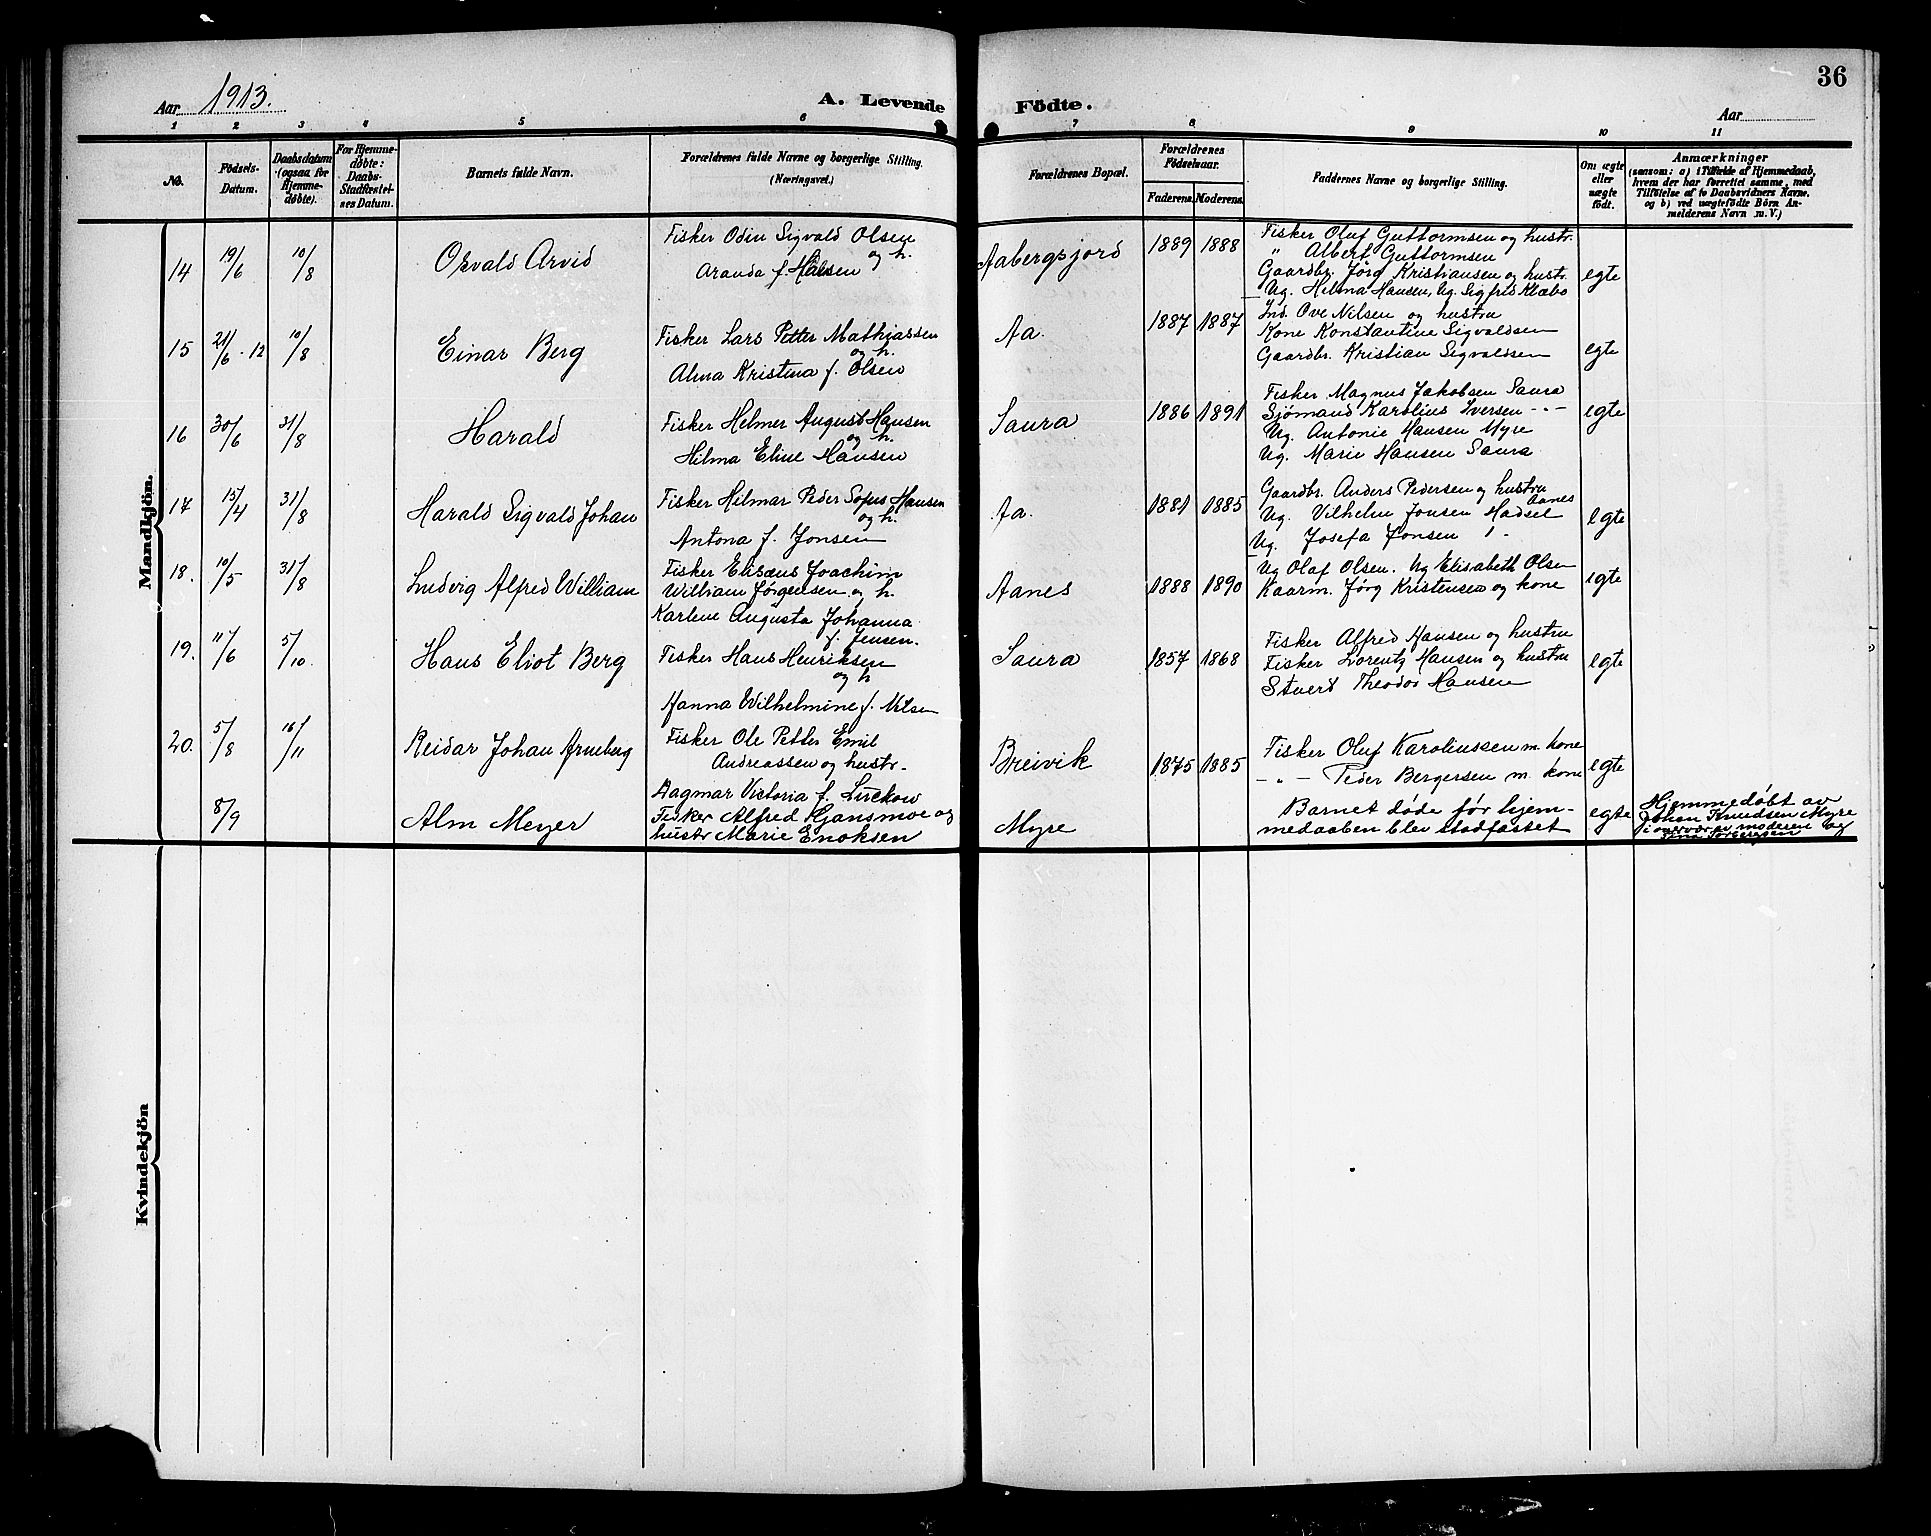 Aar 1913.
A. Levende Födte.
36
Aar
1 2 3 4 5 6 7 8 9 10 11
No.
Födsels-Datum.
Daabsdatum (ogsaa for Hjemme-døbte).
For Hjemme-døbte: Daabs-Stadfæstel-ses Datum.
Barnets fulde Navn.
Forældrenes fulde Navne og borgerlige Stilling. (Næringsvei.)
Forældrenes Bopæl.
Forældrenes Fødselsaar.
Faderens. Moderens.
Faddernes Navne og borgerlige Stilling.
Om ægte eller uægte født.
Anmærkninger
(saasom: a) i Tilfælde af Hjemmedaab,
hvem der har forrettet samme, med
Tilföielse af to Daabsvidners Navne.
og b) ved uægtefödte Börn An-
melderens Navn m. V.)
Mandkjön.
14 19/6 10/8 Osvald Arvid
Fisker Odin Sigvald Olsen
og h.
Aranda f. Halsen
Aabergsjord 1889 1888
Fisker Oluf Guttormsen og hustr.
" Albert Guttormsen
Gaardbr. Jørg Kristiansen og hustr.
Ug. Helma Hansen, Ug. Sigfrid Klæbo
egte
15 21/6 - 12 10/8 Einar Berg
Fisker Lars Petter Mathiassen
og h.
Alma Kristina f. Olsen
Aa. 1887 1887
Ind. Ove Nilsen og hustru
Kone Konstantine Sigvaldsen
Gaardbr. Kristian Sigvaldsen
egte
16 30/6 31/8 Harald
Fisker Helmer August Hansen
og h.
Hilma Eline Hansen
Saura 1886 1891
Fisker Magnus Jakobsen Saura
Sjømand Karolius Iversen -"-
Ug. Antonie Hansen Myre
Ug. Marie Hansen Saura
egte
17 15/4 31/8 Harald Sigvald Johan
Fisker Hilmar Peder Sofus Hansen
og h.
Antona f. Jonsen
Aa. 1881 1885
Gaardbr. Anders Pedersen og hustru
Aanes
Ug. Vilhelm Jonsen Hadsel
Ug. Josefa Jonsen
egte
18. 10/5 31/8 Ludvig Alfred William
Fisker Elisæus Joachim
William Jørgensen og h.
Karlene Augusta Johanna
f. Jensen.
Aanes 1888 1890
Ug Olaf Olsen. Ug Elisabeth Olsen
Kaarm. Jörg Kristensen og kone
egte
19. 11/6 5/10. Hans Eliot Berg
Fisker Hans Henriksen
og h
Hanna Wilhelmine f. Nilsen
Saura 1857 1868
Fisker Alfred Hansen og hustru
Fisker Lorentz Hansen og hustru
Stuert Theodor Hansen
egte
20. 5/8 16/11 Reidar Johan Arneberg
Fisker Ole Petter Emil
Andreassen og hustr.
Dagmar Victoria f. Luckow
Breivik 1875 1885
Fisker Oluf Karoliussen m. kone
-"- Peder Bergersen m. kone
egte
8/9 Alm Meyer
Fisker Alfred Kjansmoe og
hustr Marie Enoksen
Myre
Barnet døde før hjem-
medaaben blev stadfæstet
egte
Hjemmedøbt av
Johan Knudsen Myre
i overvær av moderen og
Kvindekjön